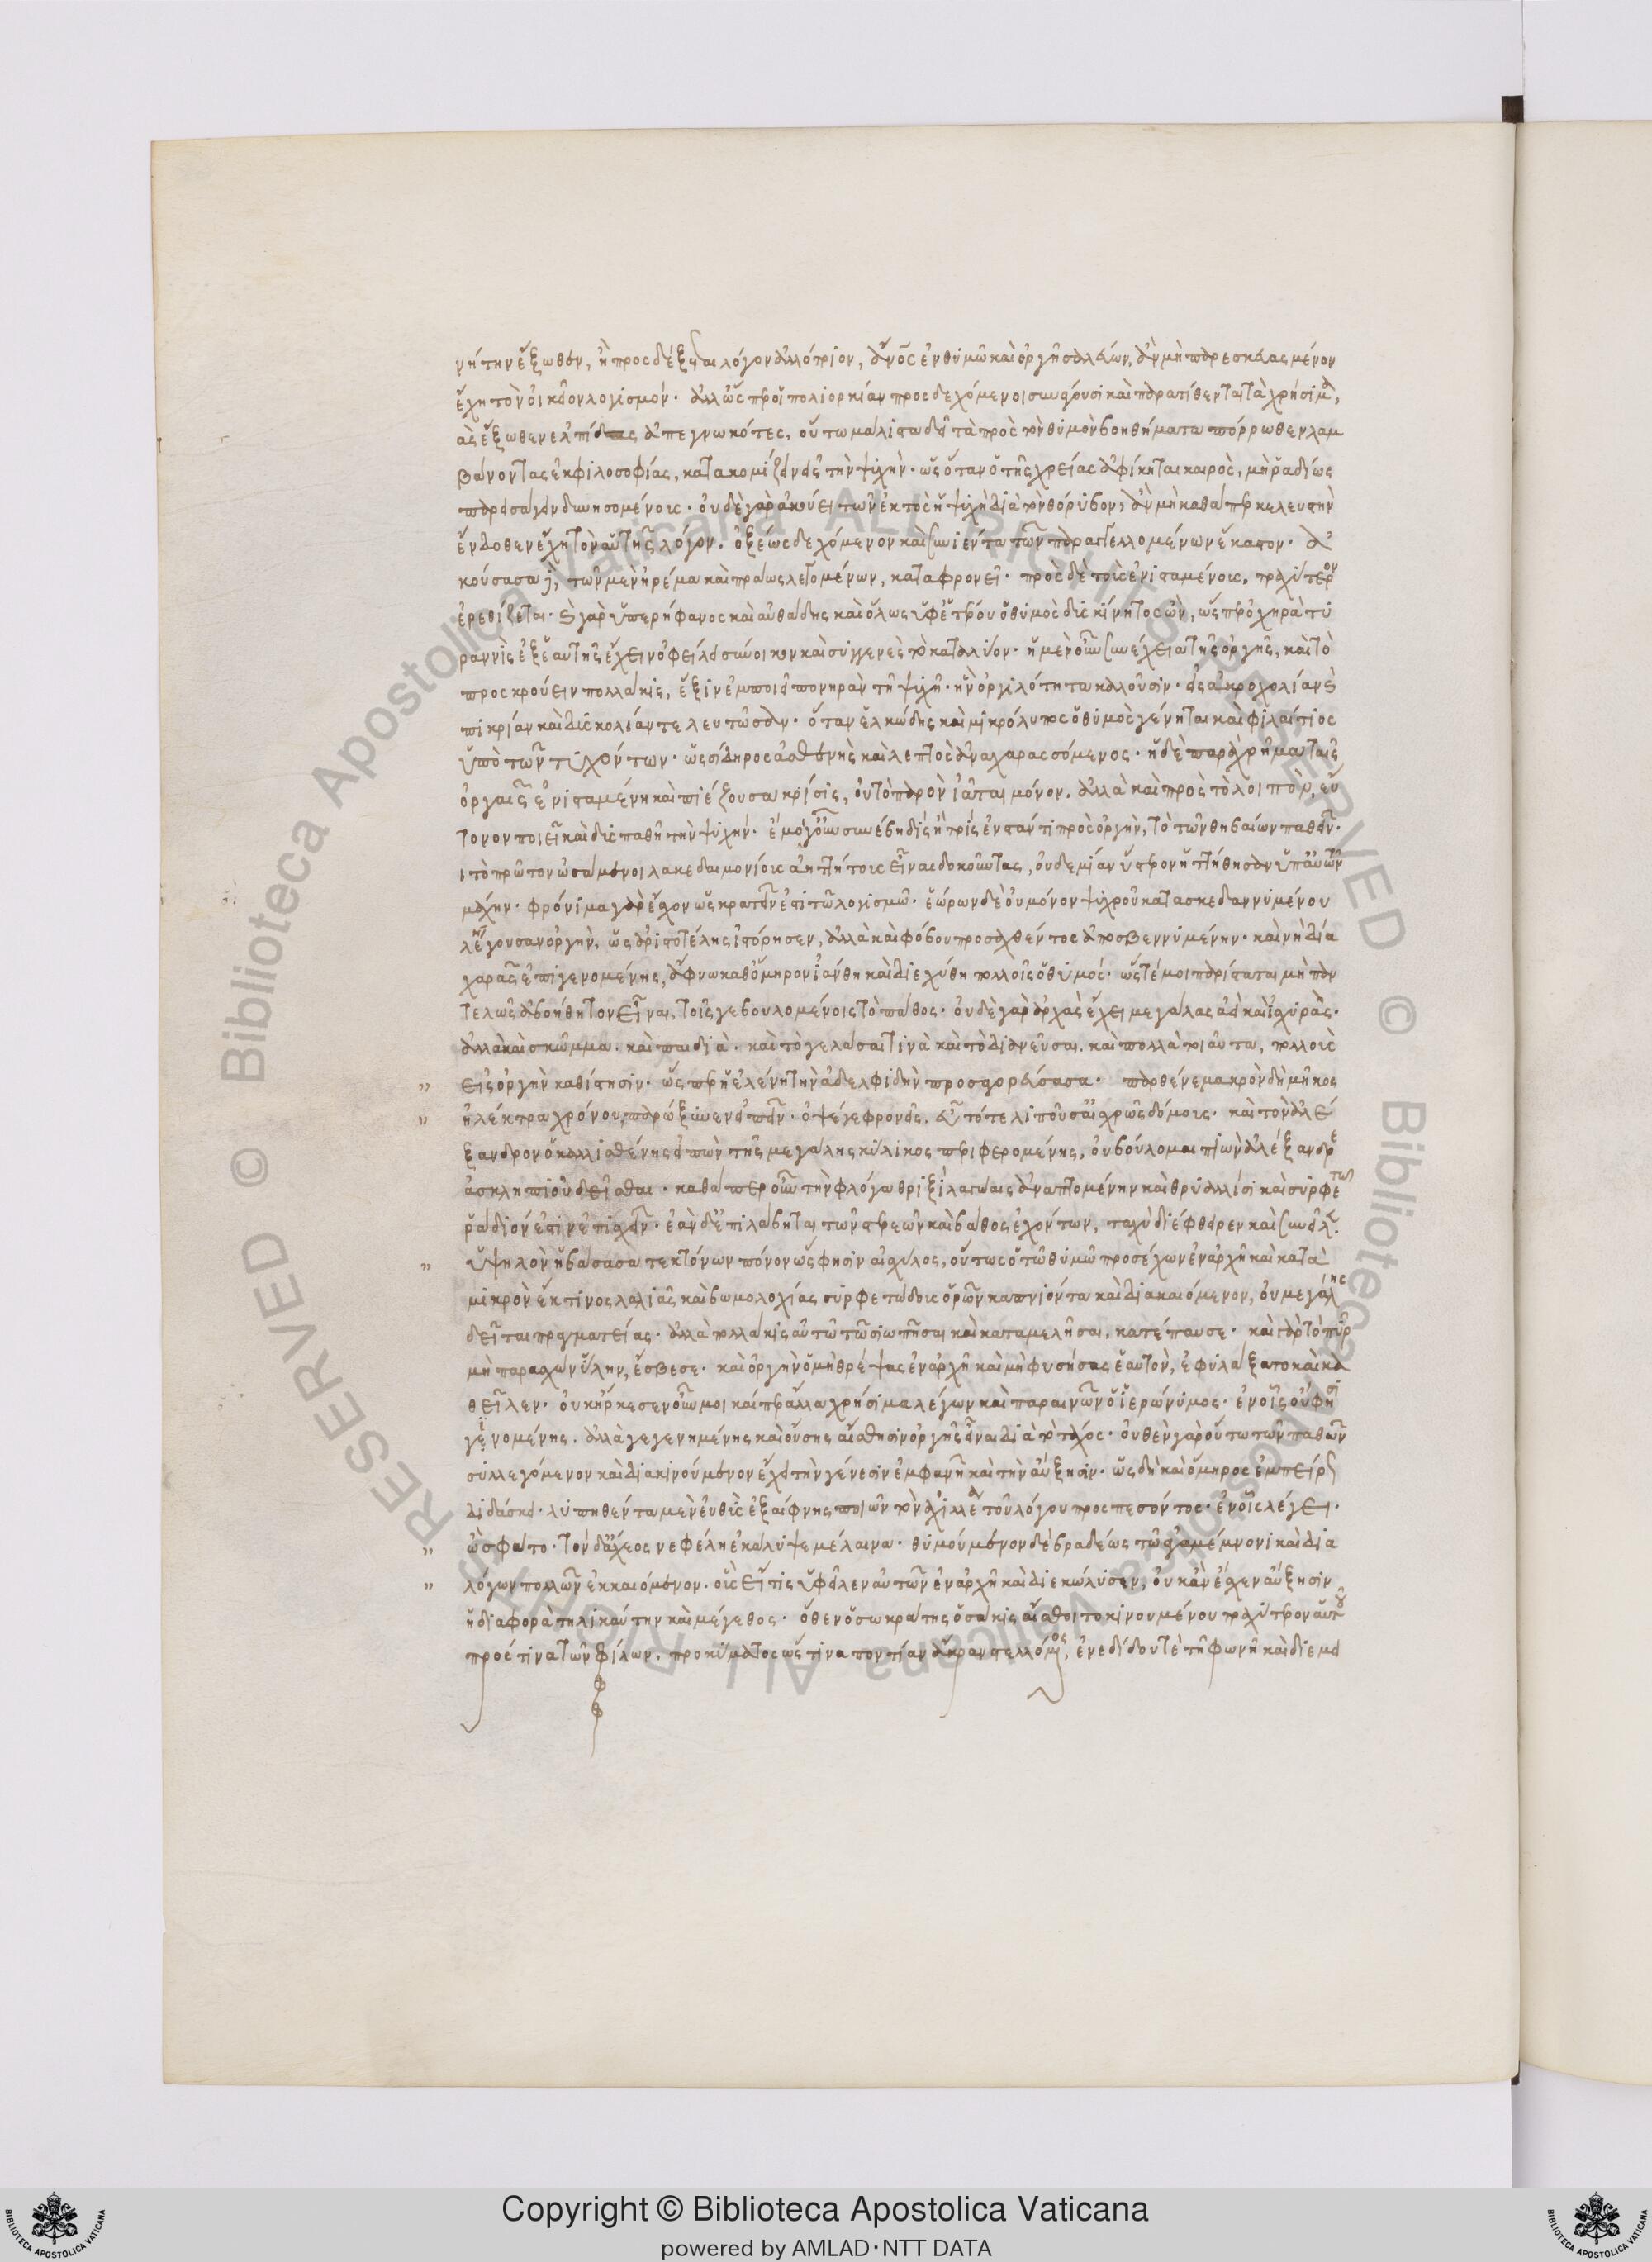 νήτην ἔξωθεν, ἢ προσδέξεται λόγον ἀλλότριον, ἄνος ἐν θυμῶ καὶ ὀργῆ σαλεύων, ἂν μὴ παρεσκευασμένον
ἔχη τὸν οἰκεῖον λογισμόν. ἀλλ' ὥσπερ οἱ πολιορκίαν προσδεχόμενοι συνάγουσι καὶ παρατίθενται τὰ χρήσιμα,
τὰς ἔξωθεν ἐλπίδας ἀπεγνωκότες, οὕτω μάλιστα δεῖ τὰ πρὸς τὸν θυμὸν βοηθήματα πόρρωθεν λαμ
βάνοντας ἐκ φιλοσοφίας, κατακομίζειν εἰς τὴν ψυχὴν. ὡς ὅταν ὁ τῆς χρείας ἀφίκηται καιρὸς, μὴ ῥαδίως
παρεισάγειν δυνησομένοις. οὐδὲ γὰρ ἀκούει τῶν ἐκτὸς ἡ ψυχὴ διὰ τὸν θόρυβον, ἂν μὴ καθάπερ κελευστὴν
ἔνδοθεν ἔχη τὸν αὑτῆς λόγον. ὀξέως δεχόμενον καὶ συνιέντα τῶν παραγγελλομένων ἕκαστον. ἀ
κούσασα, τῶν μὲν ἠρέμα καὶ πράως λεγομένων, καταφρονεῖ. πρὸς δὲ τοὺς ἐνισταμένους, τραχύτερον
ἐρεθίζεται. καὶ γὰρ ὑπερήφανος καὶ αὐθάδης καὶ ὅλως ὑφ' ἑτέρου ὁ θυμὸς δυσκίνητος ὢν, ὥσπερ ὀχυρὰ τυ
ραννὶς ἐξ ἑαυτῆς ἔχειν ὀφείλει σύνοικον καὶ συγγενὲς τὸ καταλύον. ἡ μὲν οὖν συνέχεια τῆς ὀργῆς, καὶ τὸ
προσκρούειν πολλάκις, ἕξιν ἐμποιεῖ πονηρὰν τῆ ψυχῆ. ἣν ὀργιλότητα καλοῦσιν. εἰς ἀκροχολίαν καὶ
πικρίαν καὶ δυσκολίαν τελευτῶσαν. ὅταν ἑλκώδης καὶ μικρόλυπος ὁ θυμὸς γένηται καὶ φιλαίτιος
ὑπὸ τῶν τυχόντων. ὡς σίδηρος ἀσθενὴς καὶ λεπτὸς ἀναχαρασσόμενος. ἡ δὲ παραχρῆμα ταῖς
ὀργαῖς ἐνισταμένη καὶ πιέζουσα κρίσις, οὐ τὸ παρὸν ἰᾶται μόνον. ἀλλὰ καὶ πρὸς τὸ λοιπὸν, εὔ
τονον ποιεῖ καὶ δυσπαθῆ τὴν ψυχήν. ἐμοὶ γοῦν συνέβη δὶς ἢ τρὶς ἐνστάντι πρὸς ὀργὴν, τὸ τῶν θηβαίων παθεῖν.
ι τὸ πρῶτον ὠσάμενοι λακεδαιμονίοις ἀηττήτοις εἶναι δοκοῦντας, οὐδεμίαν ὕστερον ἡττήθησαν ὑπ' αὐτῶν
μάχην. φρόνιμα γὰρ ἔσχον ὡς κρατεῖν ἔστι τῶ λογισμῶ. ἑώρων δὲ οὐ μόνον ψυχροῦ κατασκεδαννυμένου
λήγουσαν ὀργὴν, ὡς ἀριστοτέλης ἱστόρησεν, ἀλλὰ καὶ φόβου προσαχθέντος ἀποσβεννυμένην. καὶ νὴ δία
χαρᾶς ἐπιγενομένης, ἄφνω καθ' ὅμηρον ἰάνθη καὶ διεχύθη πολλοῖς ὁ θυμός. ὥστέ μοι παρίσταται μὴ παν
τελῶς ἀβοήθητον εἶναι, τοῖς γε βουλομένοις τὸ πάθος. οὐδὲ γὰρ ἀρχὰς ἔχει μεγάλας ἀεὶ καὶ ἰσχυράς.
ἀλλὰ καὶ σκῶμμα. καὶ παιδιὰ. καὶ τὸ γελάσαί τινα καὶ τὸ διανεῦσαι. καὶ πολλὰ τοιαῦτα, πολλοὺς
" εἰς ὀργὴν καθίστησιν. ὥσπερ ἡ ἑλένη τὴν ἀδελφιδὴν προσαγορεύσασα. παρθένε μακρὸν δὴ μῆκος
" ἠλέκτρα χρόνου, παρώξυνεν εἰπεῖν. ὀψέ γε φρονεῖς. εὖ τότε λιποῦσ' αἰσχρῶς δόμους. καὶ τὸν ἀλέ
ξανδρον ὁ καλλισθένης εἰπὼν τῆς μεγάλης κύλικος περιφερομένης, οὐ βούλομαι πιὼν ἀλεξάνδρε
ἀσκληπιοῦ δεῖσθαι. καθάπερ οὖν τὴν φλόγα θριξὶ λαγώαις ἀναπτομένην καὶ θρυαλλίσι καὶ συρφετῶ
ῥάδιόν ἐστιν ἐπισχεῖν. ἐὰν δ' ἐπιλάβηται τῶν στερεῶν καὶ βάθος ἐχόντων, ταχὺ διέφθειρεν καὶ συνεῖλε.
" ὑψηλὸν ἡβάσασα τεκτόνων πόνον ὥς φησιν αἰσχύλος, οὕτως ὁ τῶ θυμῶ προσέχων ἐν ἀρχῆ καὶ κατὰ
μικρὸν ἔκ τινος λαλιᾶς καὶ βωμολοχίας συρφετώδους ὁρῶν καπνιόντα καὶ διακαιόμενον, οὐ μεγάλης
δεῖται πραγματείας. ἀλλὰ πολλάκις αὐτῶ τῶ σιωπῆσαι καὶ καταμελῆσαι, κατέπαυσε. καὶ γὰρ τὸ πῦρ
μὴ παρασχὼν ὕλην, ἔσβεσε. καὶ ὀργὴν ὁ μὴ θρέψας ἐν ἀρχῆ καὶ μὴ φυσήσας ἑαυτὸν, ἐφυλάξατο καὶ κα
θεῖλεν. οὐκ ἤρκεσεν οὖν μοι καίπερ ἄλλα χρήσιμα λέγων καὶ παραινῶν ὁ ἱερώνυμος. ἐν οἷς οὔ φησι
γινομένης. ἀλλὰ γεγενημένης καὶ οὔσης αἴσθησιν ὀργῆς εἶναι διὰ τὸ τάχος. οὐθὲν γὰρ οὕτω τῶν παθῶν
συλλεγόμενον καὶ διακινούμενον ἔχει τὴν γένεσιν ἐμφανῆ καὶ τὴν αὔξησιν. ὡς δὴ καὶ ὅμηρος ἐμπείρως
διδάσκει. λυπηθέντα μὲν εὐθὺς ἐξαίφνης ποιῶν τὸν ἀχιλλέα τοῦ λόγου προσπεσόντος. ἐν οἷς λέγει.
" ὣς φάτο. τὸν δ' ἄχεος νεφέλη ἐκάλυψε μέλαινα. θυμούμενον δὲ βραδέως τῶ ἀγαμέμνονι καὶ διὰ
" λόγων πολλῶν ἐκκαιόμενον. οὓς εἴ τις ὑφεῖλεν αὐτῶν ἐν ἀρχῆ καὶ διεκώλυσεν, οὐκ ἂν ἔσχεν αὔξησιν
ἡ διαφορὰ τηλικαύτην καὶ μέγεθος. ὅθεν ὁ σωκράτης ὁσάκις αἴσθοιτο κινουμένου τραχύτερον αὑτοῦ
πρός τινα τῶν φίλων. πρὸ κύματος ὥς τινα ποντίαν ἄκραν στελλόμενος, ἐνεδίδου τὲ τῆ φωνῆ καὶ διεμει
Copyright © Biblioteca Apostolica Vaticana
powered by AMLAD·NTT DATA